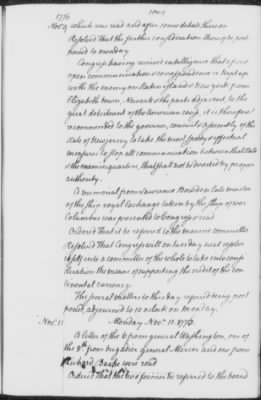 1776
Nov. 9 which was read and after some debate thereon
Resolved That the farther consideration thereof be post
poned to monday
Congress having received intelligence that a free
open communication & correspondence is kept up
with the enemy on Staten island & New york from
Elizabeth town, Newark & the parts adjacent, to the
great detriment of the American cause, it is therefore
recommended to the governor, council & assembly of the
state of New jersey to take the most speedy & effectual
measures to stop all communication between that state
& the enemies quarters, that shall not be directed by proper
authority.
A memorial from Laurence Bowden late master
of the ship royal Exchange taken by the ship of war
Columbus was presented to Congress & read
Ordered That it be referred to the marine committee
Resolved That Congress will on tuesday next resolve
itself into a committee of the whole to take into consi
deration the means of supporting the credit of the con
tinental currency.
The several matters to this day referred being post
poned, adjourned to 10 oclock on monday.
Nov. 11 Monday Nov. 11. 1776.
A letter of the 6 from general Washington, one
of the 8th from brigadier general Mercer and one from
Richard Bache were read
Ordered That the two former be referred to the board